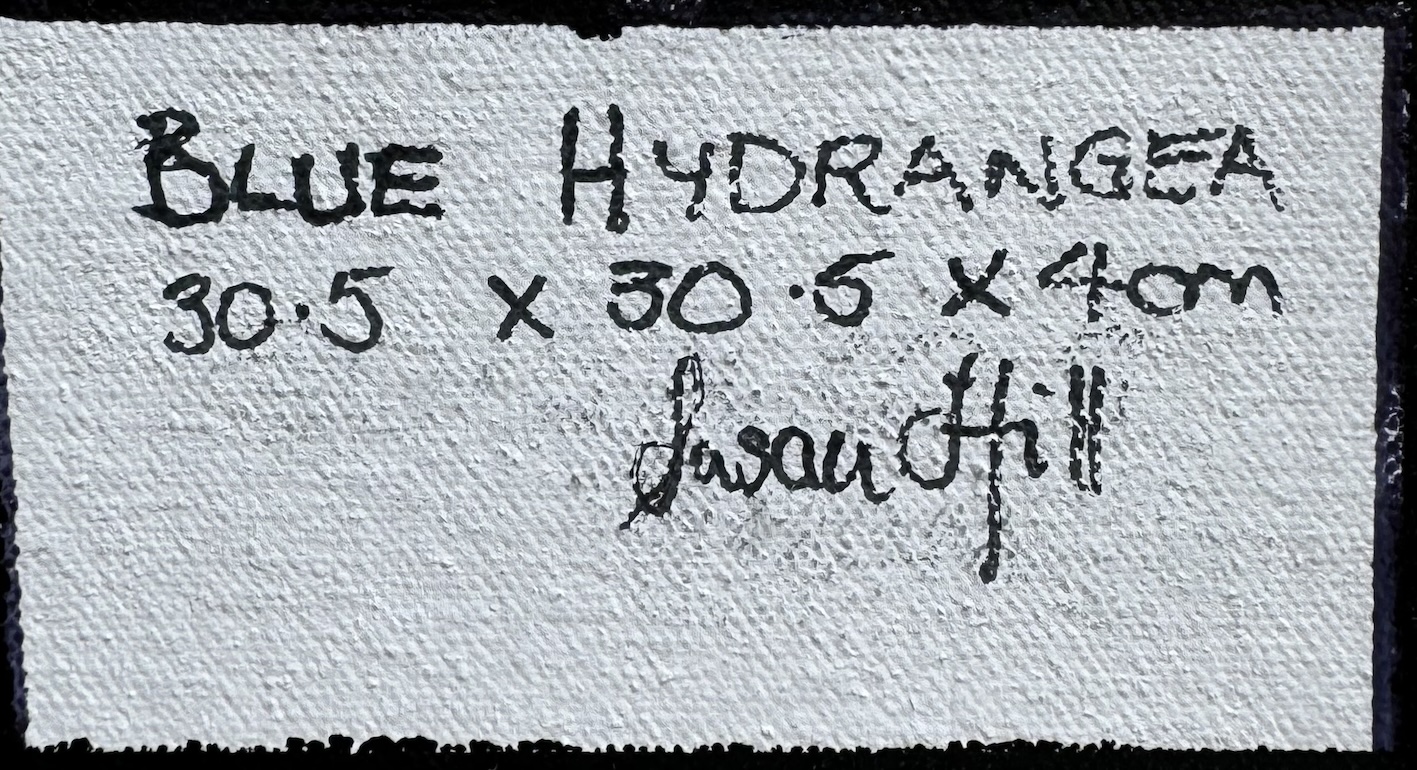 BLUE HYDRANGEA
30.5 x 30.5 x 4cm
Susan Hill